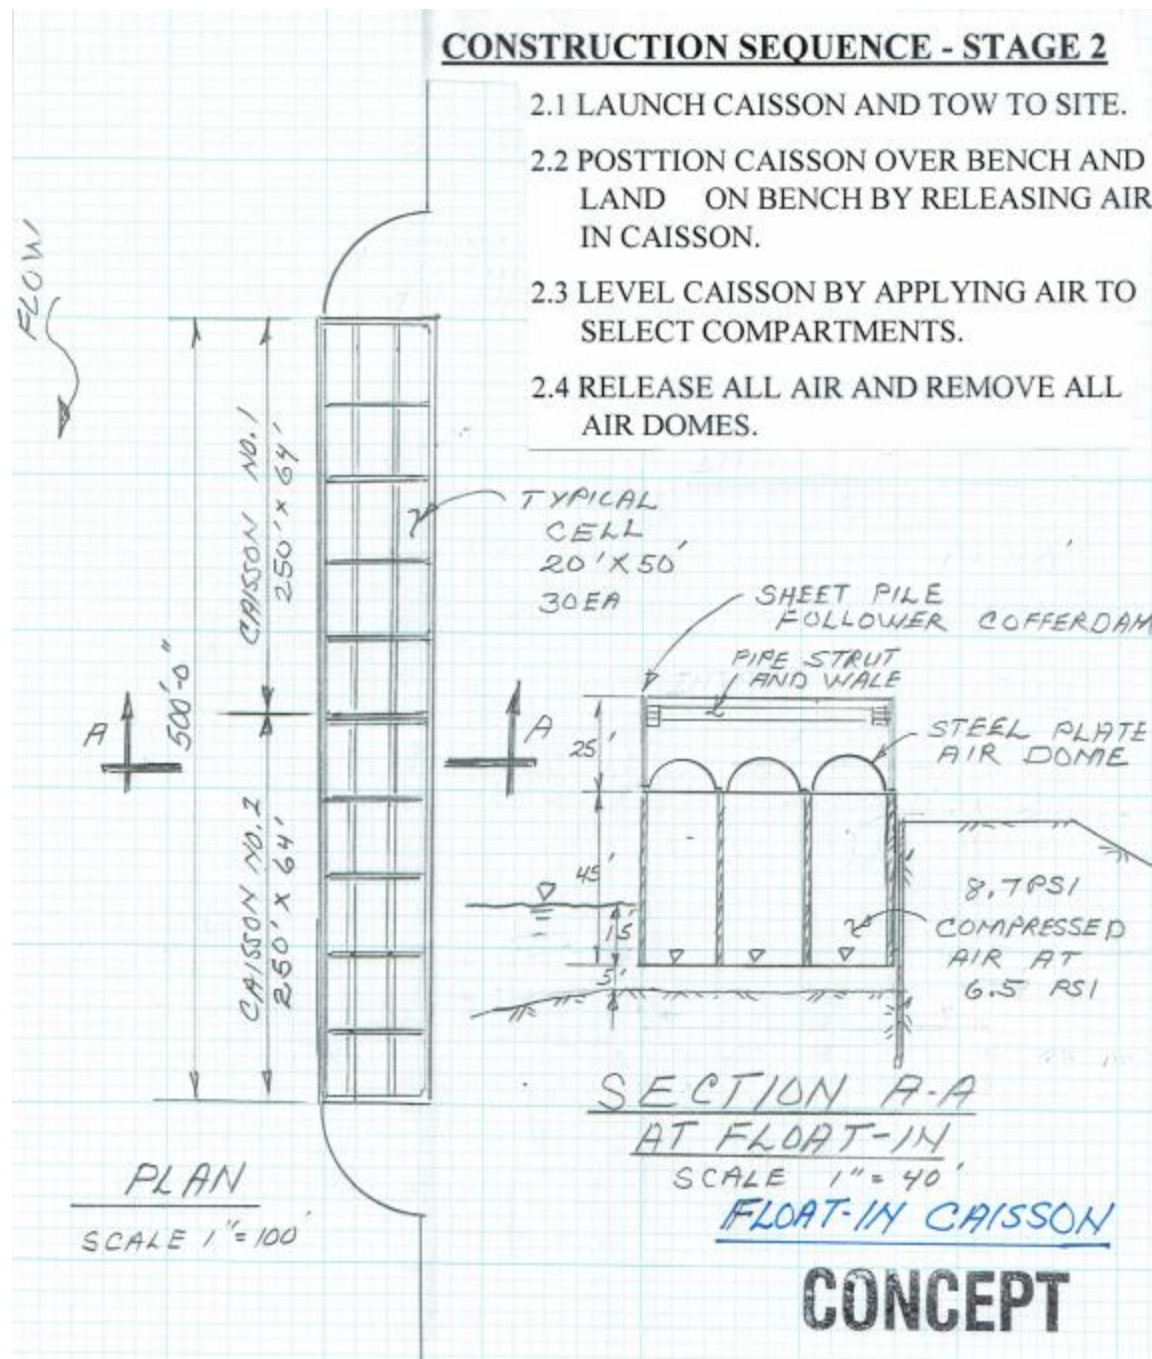 CONSTRUCTION SEQUENCE - STAGE 2
2.1 LAUNCH CAISSON AND TOW TO SITE.
2.2 POSTTION CAISSON OVER BENCH AND
LAND ON BENCH BY RELEASING AIR
IN CAISSON.
2.3 LEVEL CAISSON BY APPLYING AIR TO
SELECT COMPARTMENTS.
2.4 RELEASE ALL AIR AND REMOVE ALL
AIR DOMES.
FLOW
CAISSON NO. 1
250' x 64'
500'-0"
CAISSON NO. 2
250' x 64'
A
A
TYPICAL
CELL
20' X 50'
30EA
SHEET PILE
FOLLOWER COFFERDAM
PIPE STRUT
AND WALE
STEEL PLATE
AIR DOME
25'
45'
15'
5'
8.7 PSI
COMPRESSED
AIR AT
6.5 PSI
SECTION A-A
AT FLOAT-IN
SCALE 1" = 40'
PLAN
SCALE 1" = 100'
FLOAT-IN CAISSON
CONCEPT